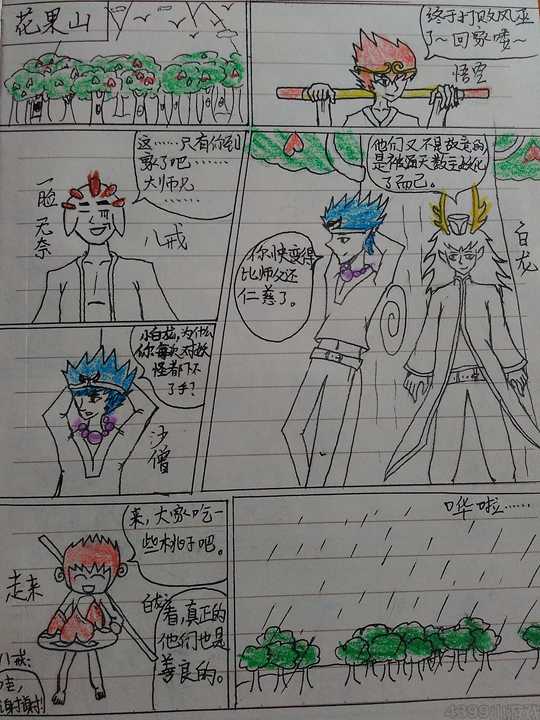 花果山
终于打败风巫
了~回家喽~
悟空
这……只有你到
家了吧……
大师兄……
一脸无奈
八戒
他们又不是故意的
是被通天教主放化
了而已。
你快变得
比师父还
仁慈了。
白龙
小白龙，为什么
你每次对妖
怪都下不
了手？
沙僧
来，大家吃一
些桃子吧。
走来
白龙：
看，真正的
他们也是
善良的。
八戒：
哇，
谢谢！
哗啦……
4399